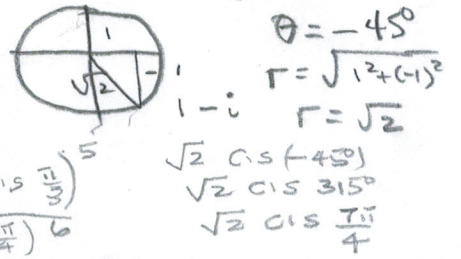 1
√2
-1
1 - i
θ = -45°
r = √1²+(-1)²
r = √2
√2 cis (-45°)
√2 cis 315°
√2 cis 7π/4
is π/3)⁵
π/4) 6